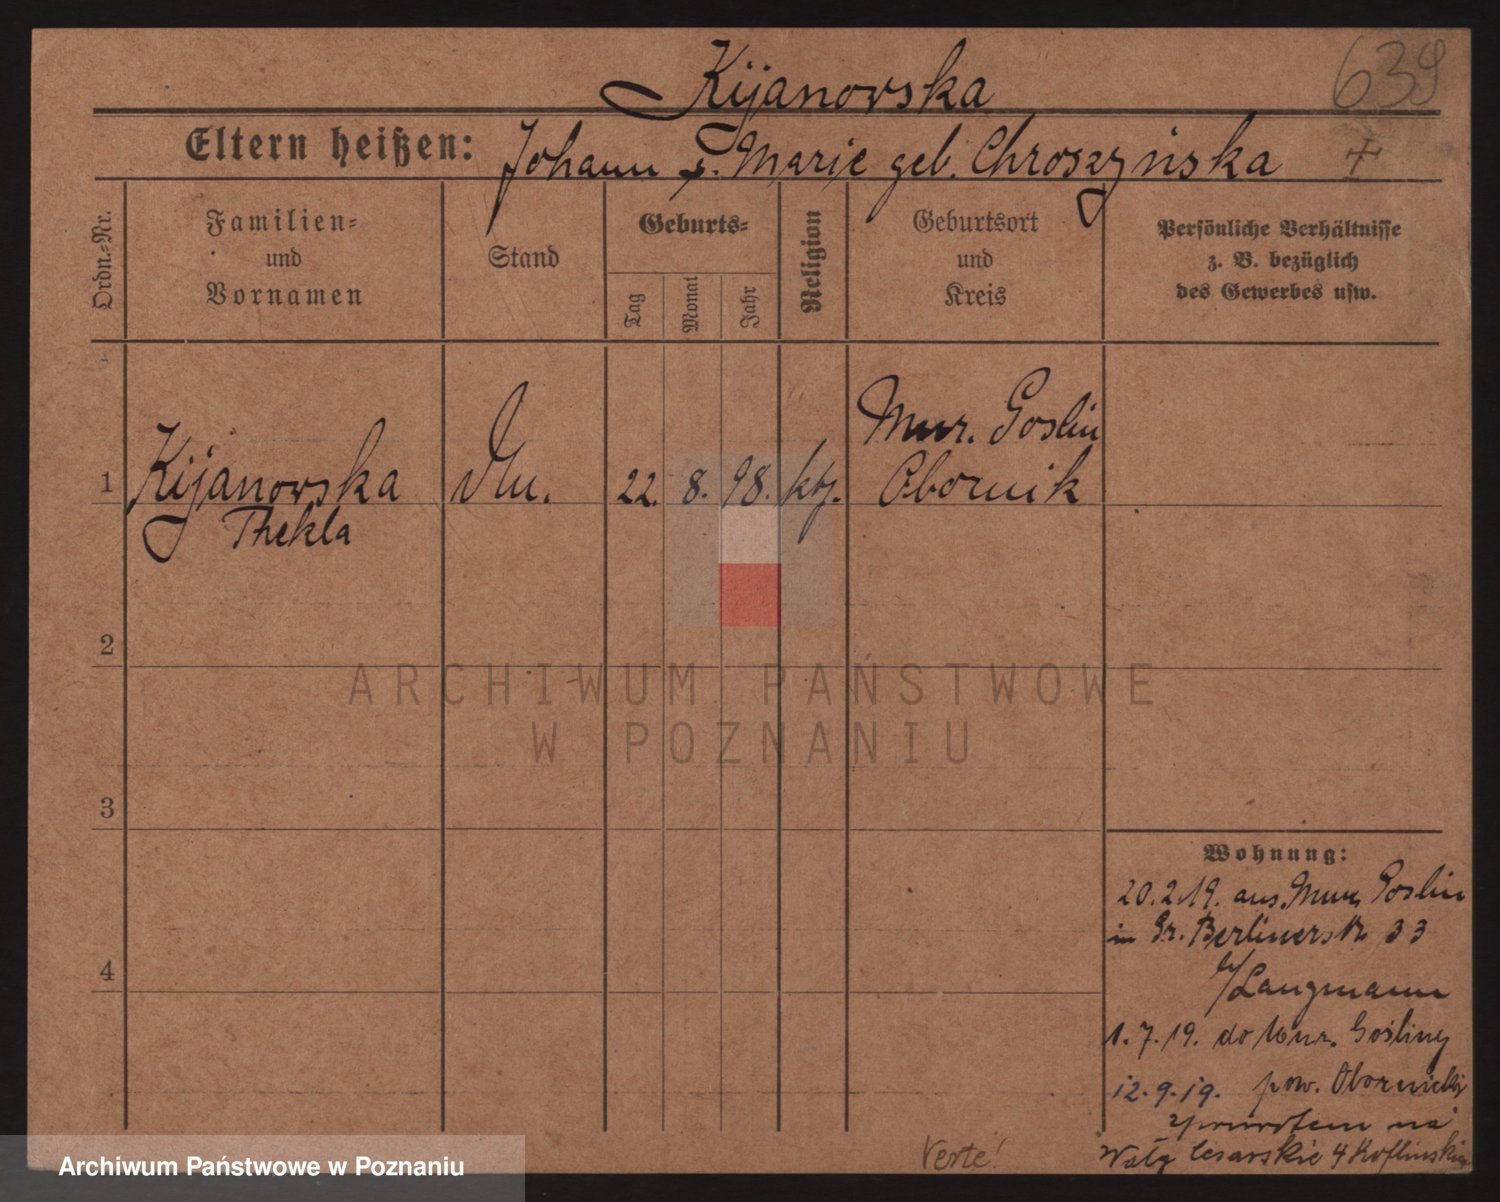 Kijanowska
639
Eltern heißen: Johann u. Marie geb. Chroszyńska
Ordn.-Nr.
Familien- und Vornamen
Stand
Geburts-
Tag
Monat
Jahr
Religion
Geburtsort und Kreis
Persönliche Verhältnisse
z. B. bezüglich
des Gewerbes usw.
Mur. Goslin
1 Kijanowska 22. 8. 98. kth. Obornik
Thekla
2
ARCHIWUM PAŃSTWOWE
W POZNANIU
3
Wohnung:
20.2.19. aus Mur. Goslin
in Gr. Berlinerstr. 33
b/Langmann
4
1.7.19. do Mur. Gośliny
12.9.19. pow. Obornicki
na
Wały 4
Verte!
Archiwum Państwowe w Poznaniu